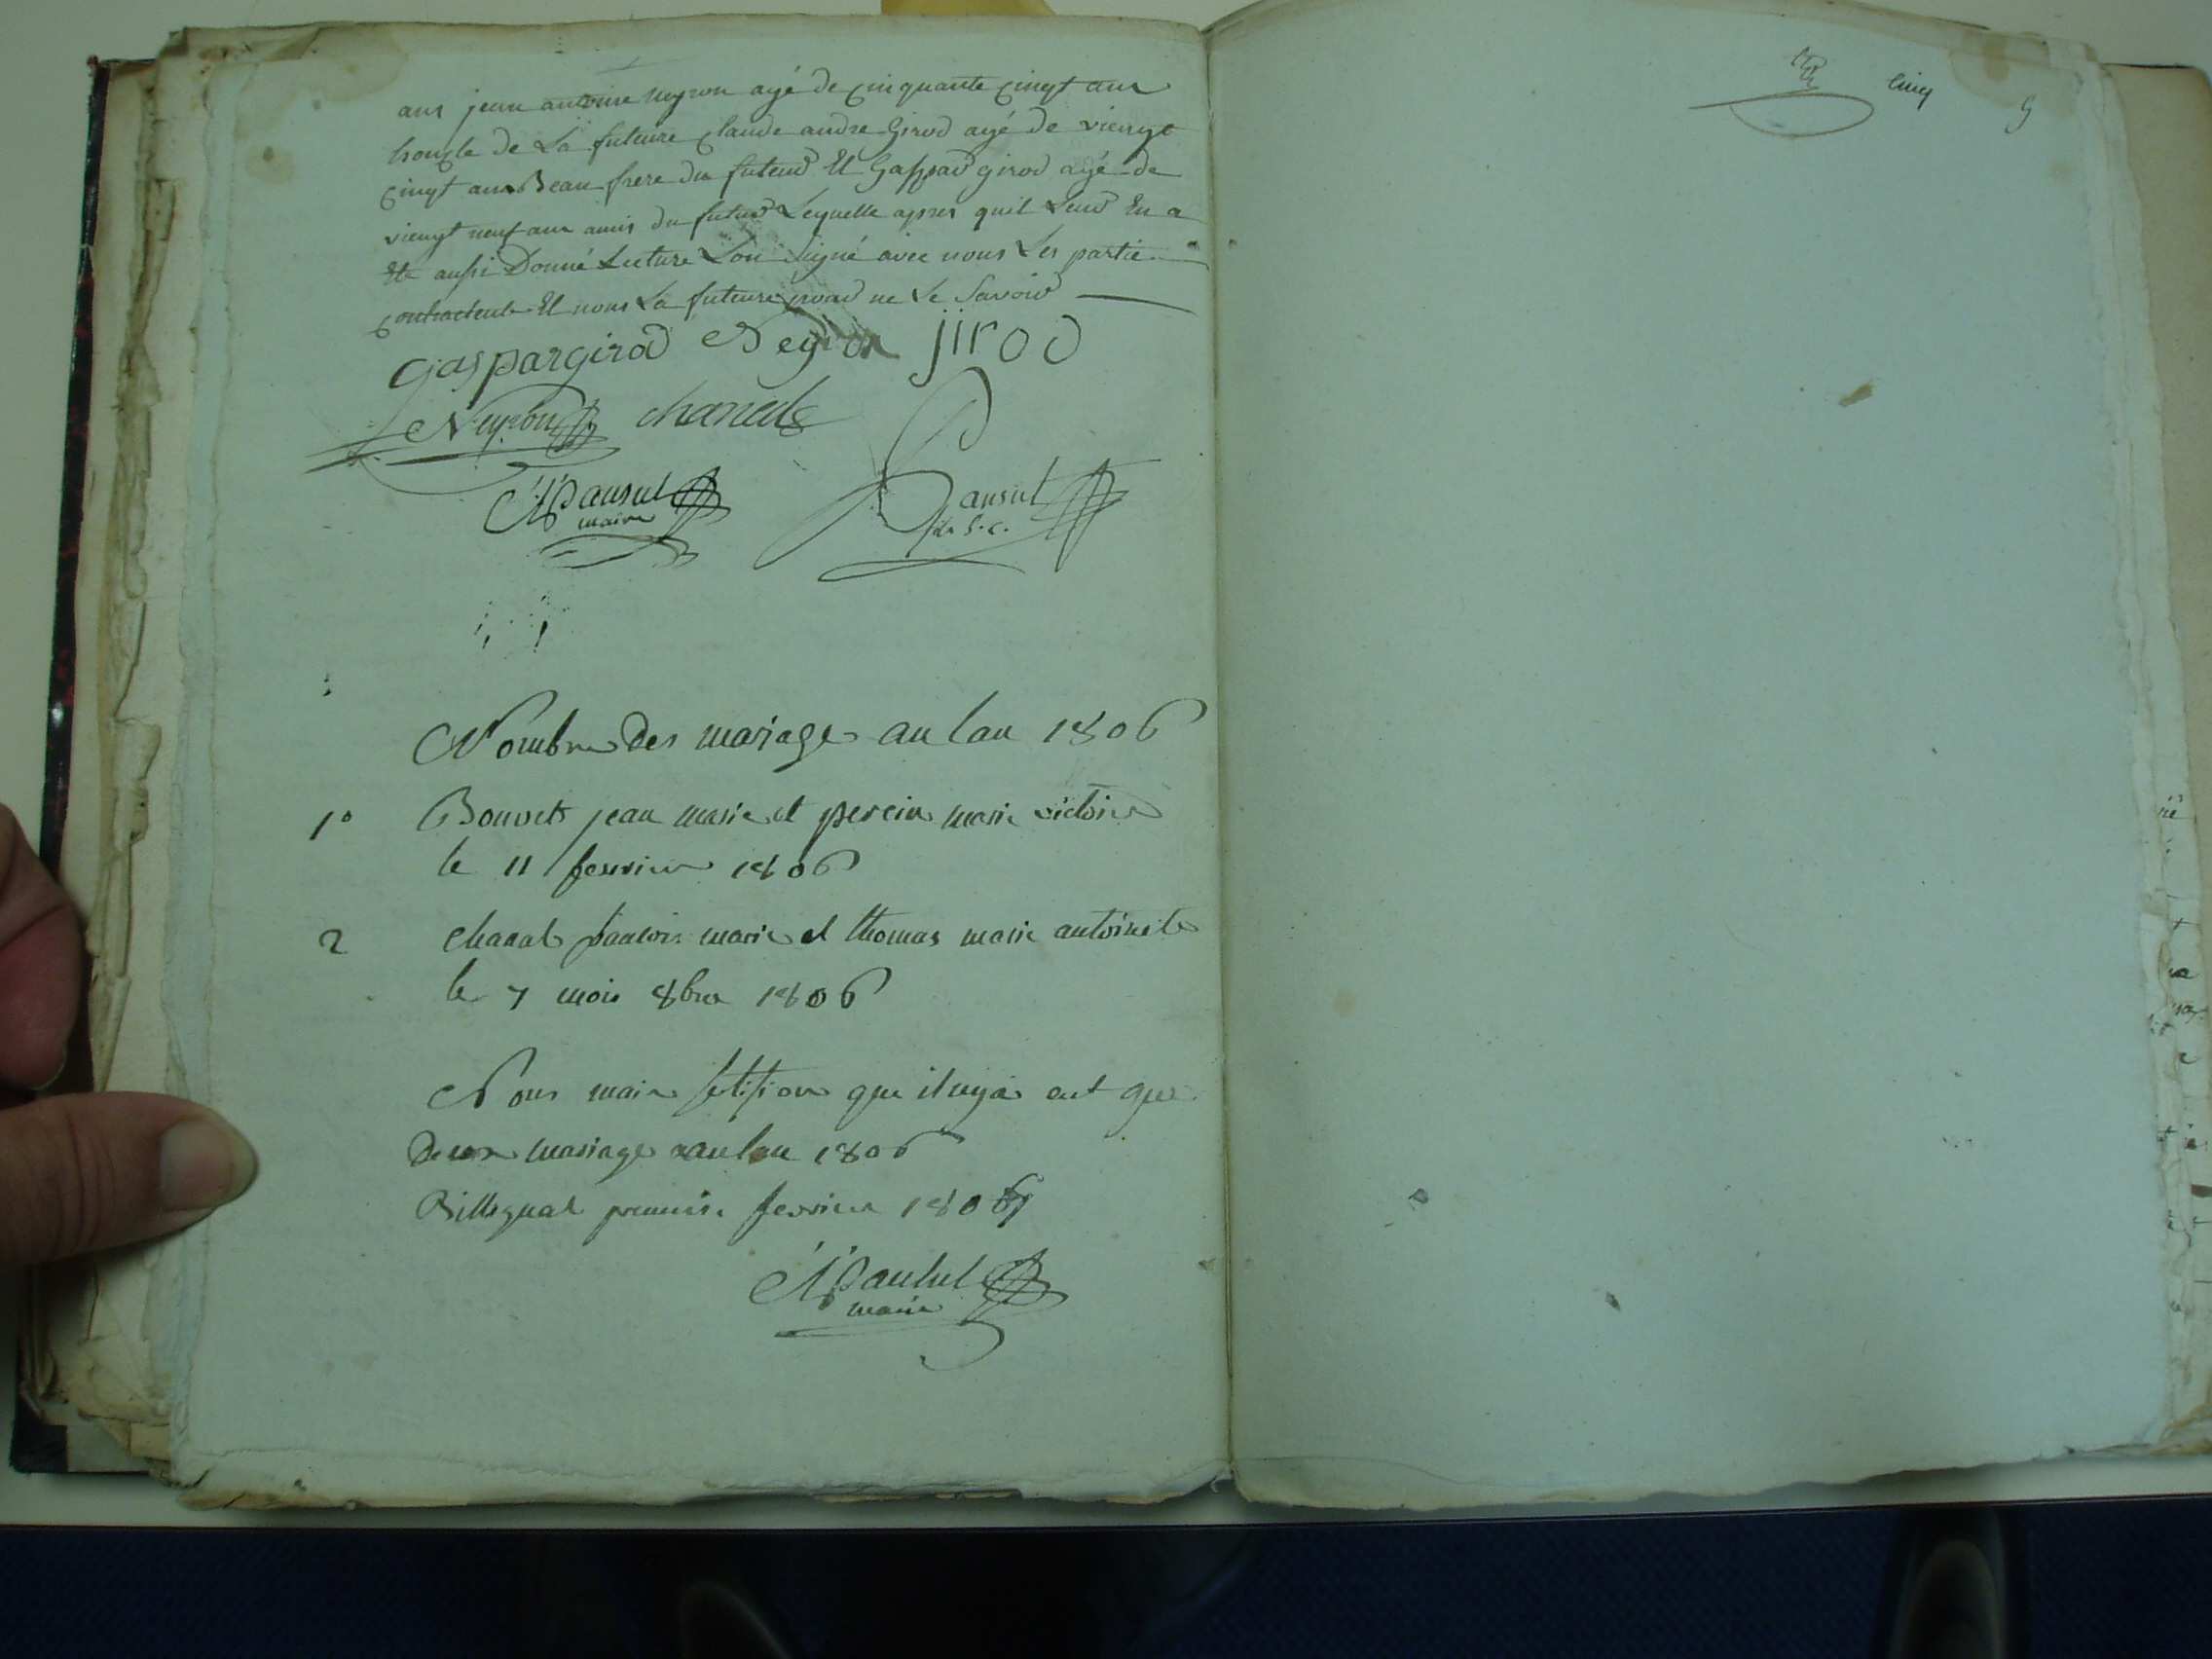 ans jean antoine neyron agé de cinquante cinqt ans
houcle de La future Claude andre Girod agé de viengt
cinqt ans Beau frere du futeur Et Gaspard girod agé de
viengt neuf ans amis du futur Lequelle apres quil Leur En a
Ete aussi Donné Lecture Lon Signé avec nous Les partie
contractente Et nous La future pour ne Le Savoir
gaspargirod Neyron jirod
Neyron chanal
Pansut
maire
Pansut
S. C.
Nombre des mariage an lan 1806
1° Bouvet jean marie et perein marie victoire
le 11 fevrier 1806
2 chanal marie et thomas marie antoinete
le 7 mois 8bre 1806
Nous maire que il nya eut que
Deux mariage lan 1806
Billegnal premier fevrier 1807
Pansut
maire
Cinq
5